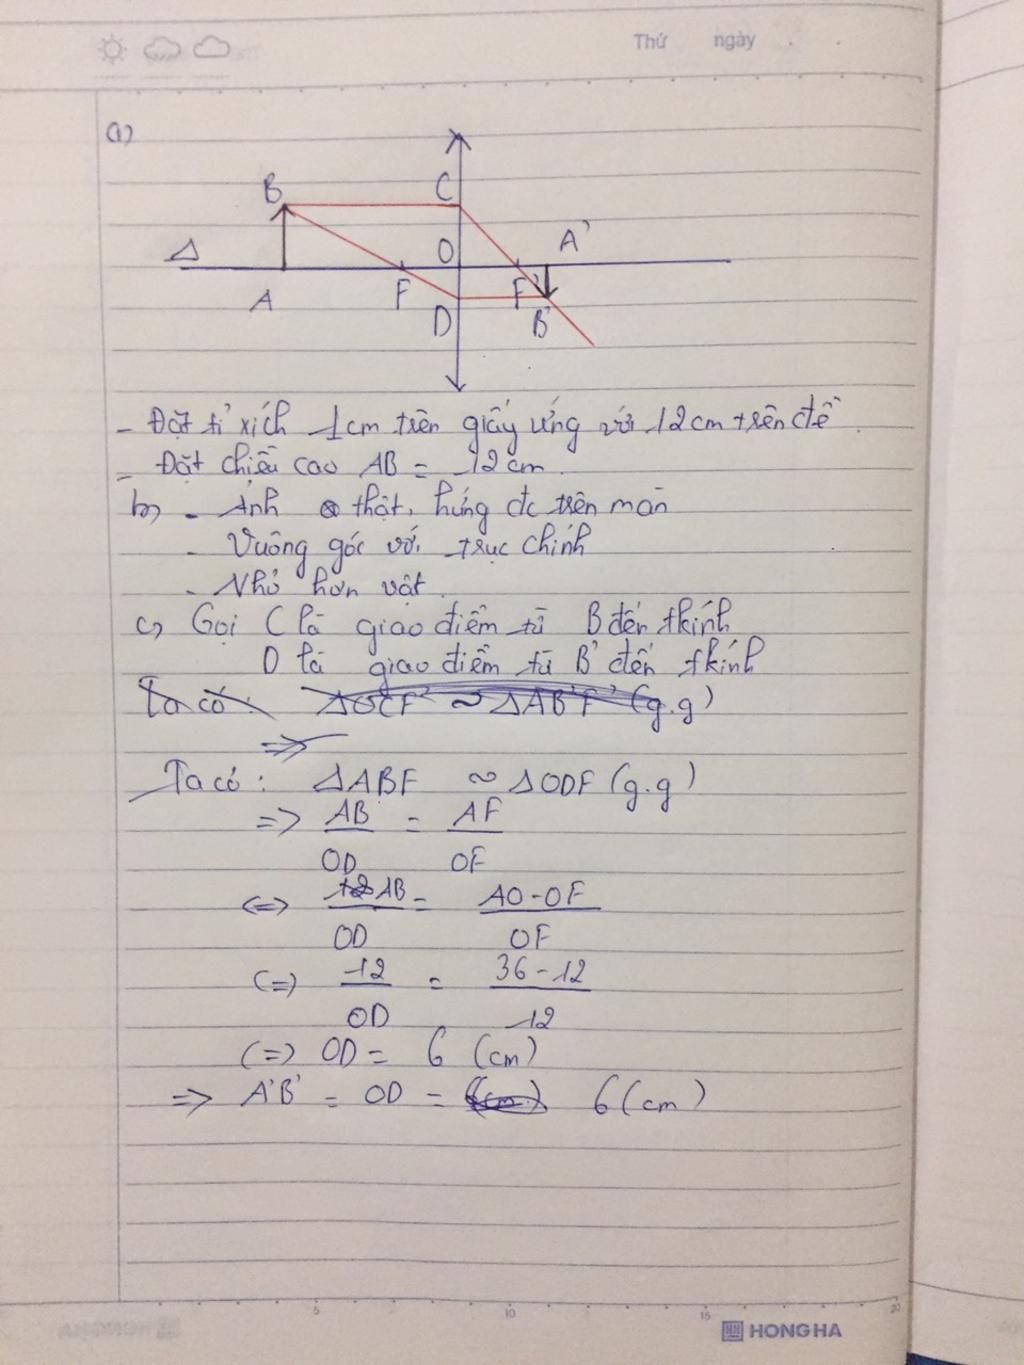 Thứ ngày
(1)
B C
Δ O A'
A F F' B'
D
- Đặt tỉ xích 1cm trên giấy ứng với 12cm trên đề.
- Đặt chiều cao AB = 12cm.
b) - Ảnh thật, hứng đc trên màn
- Vuông góc với trục chính
- Nhỏ hơn vật.
c) Gọi C là giao điểm từ B đến tkính
D là giao điểm từ B' đến tkính
Ta có: ΔOCF' ~ ΔA'B'F' (g.g)
=>
Ta có: ΔABF ~ ΔODF (g.g)
=> AB = AF
OD OF
<=> AB = AO - OF
OD OF
(=) 12 = 36 - 12
OD 12
(=) OD = 6 (cm)
=> A'B' = OD = 6 (cm)
5 10 15 20
HONG HA